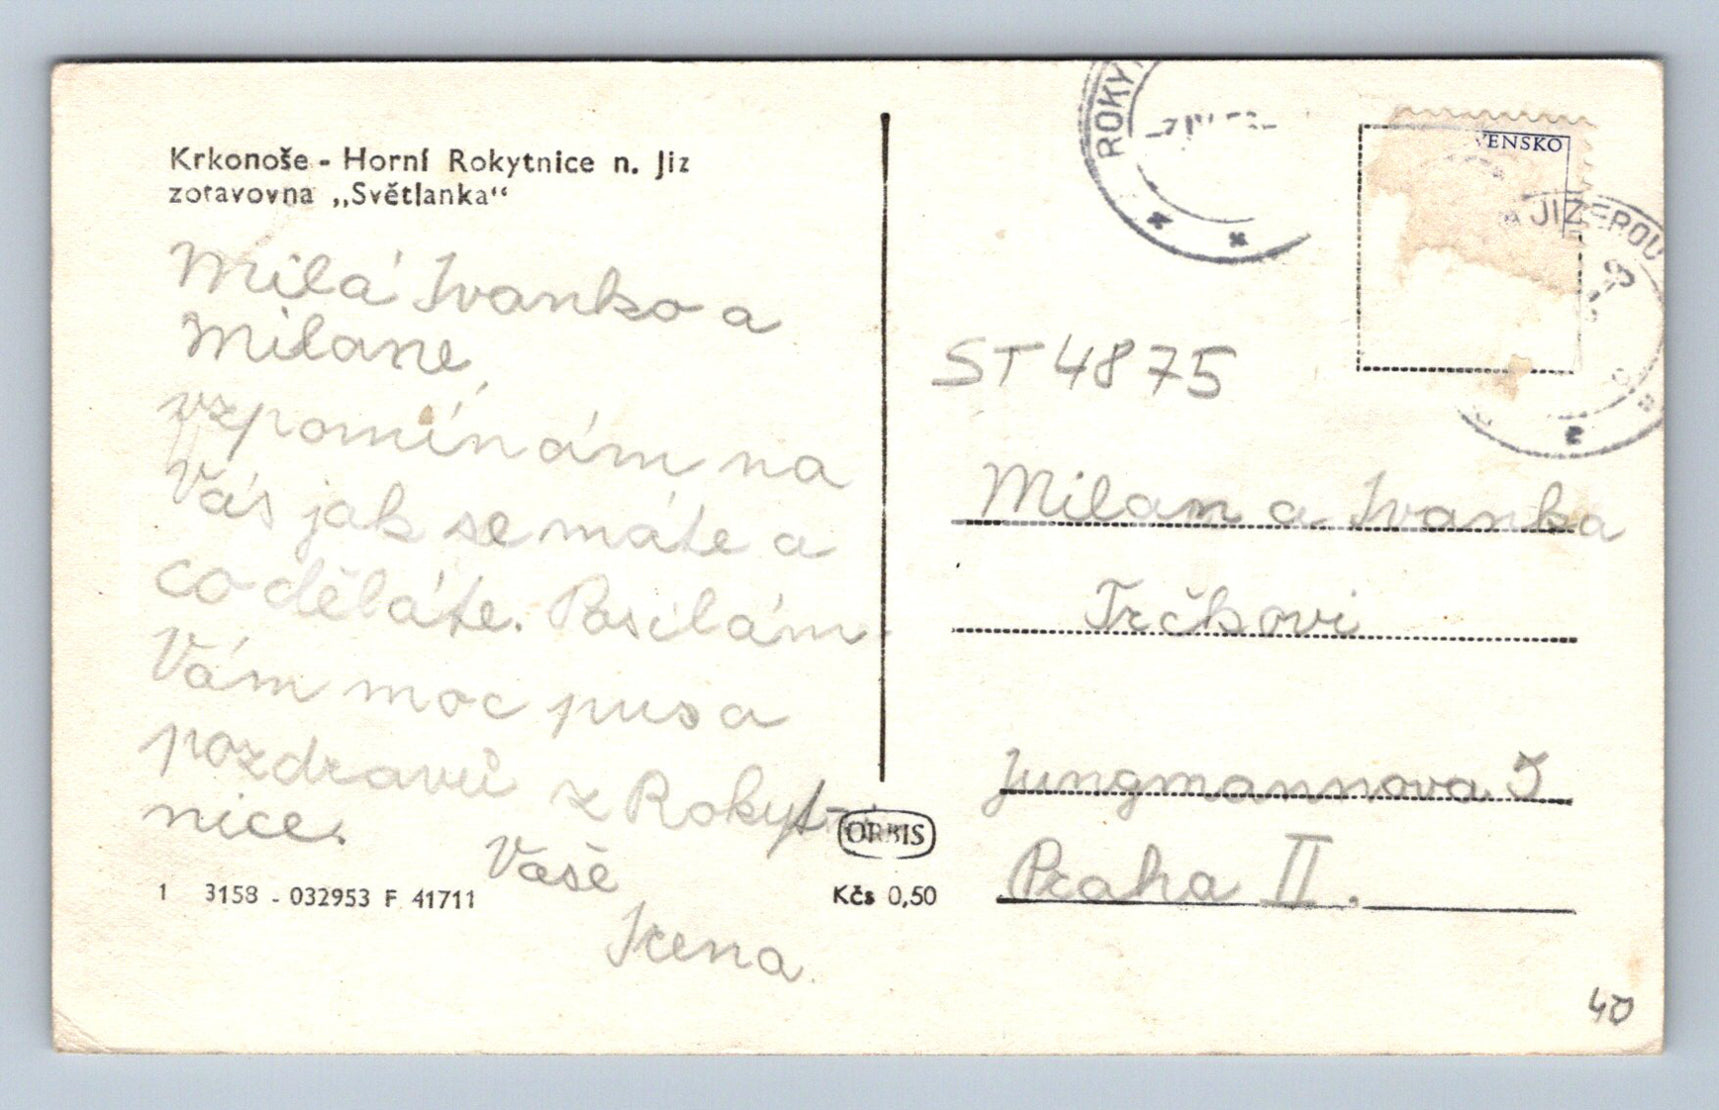 Krkonoše - Horní Rokytnice n. Jiz
zotavovna „Světlanka“
Milá Ivanko a
Milane,
vzpomínám na
Vás jak se máte a
co děláte. Posílám
Vám moc pus a
pozdravů z Rokyt-
nice.
Vaše
Irena.
1 3158 - 032953 F 41711
ORBIS
Kčs 0,50
ROKYT
VENSKO
JIZEROU
ST 4875
Milan a Ivanka
Trčkovi
Jungmannova 5
Praha II.
40